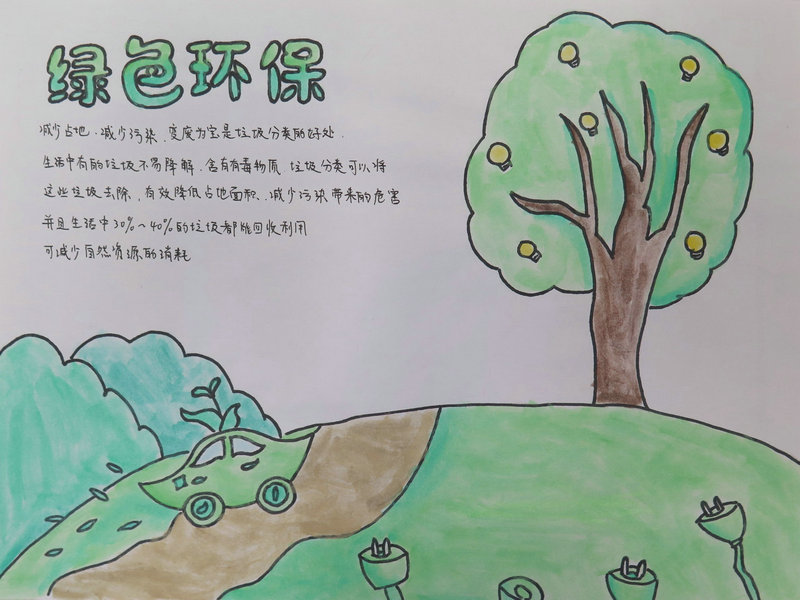 绿色环保
减少占地、减少污染、变废为宝是垃圾分类的好处.
生活中有的垃圾不易降解,含有有毒物质.垃圾分类可以将
这些垃圾去除,有效降低占地面积、减少污染带来的危害
并且生活中30%~40%的垃圾都能回收利用
可减少自然资源的消耗